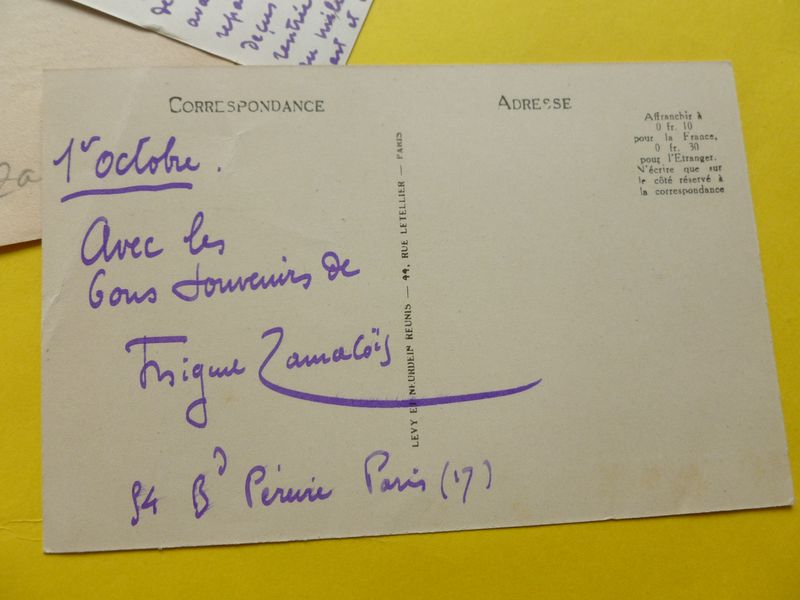 CORRESPONDANCE
ADRESSE
Affranchir à
0 fr. 10
pour la France,
0 fr. 30
pour l'Etranger.
N'écrire que sur
le côté réservé à
la correspondance
1er octobre.
Avec les
bons souvenirs de
Miguel Zamacoïs
94 Bd Péreire Paris (17)
LEVY ET NEURDEIN REUNIS — 44, RUE LETELLIER — PARIS